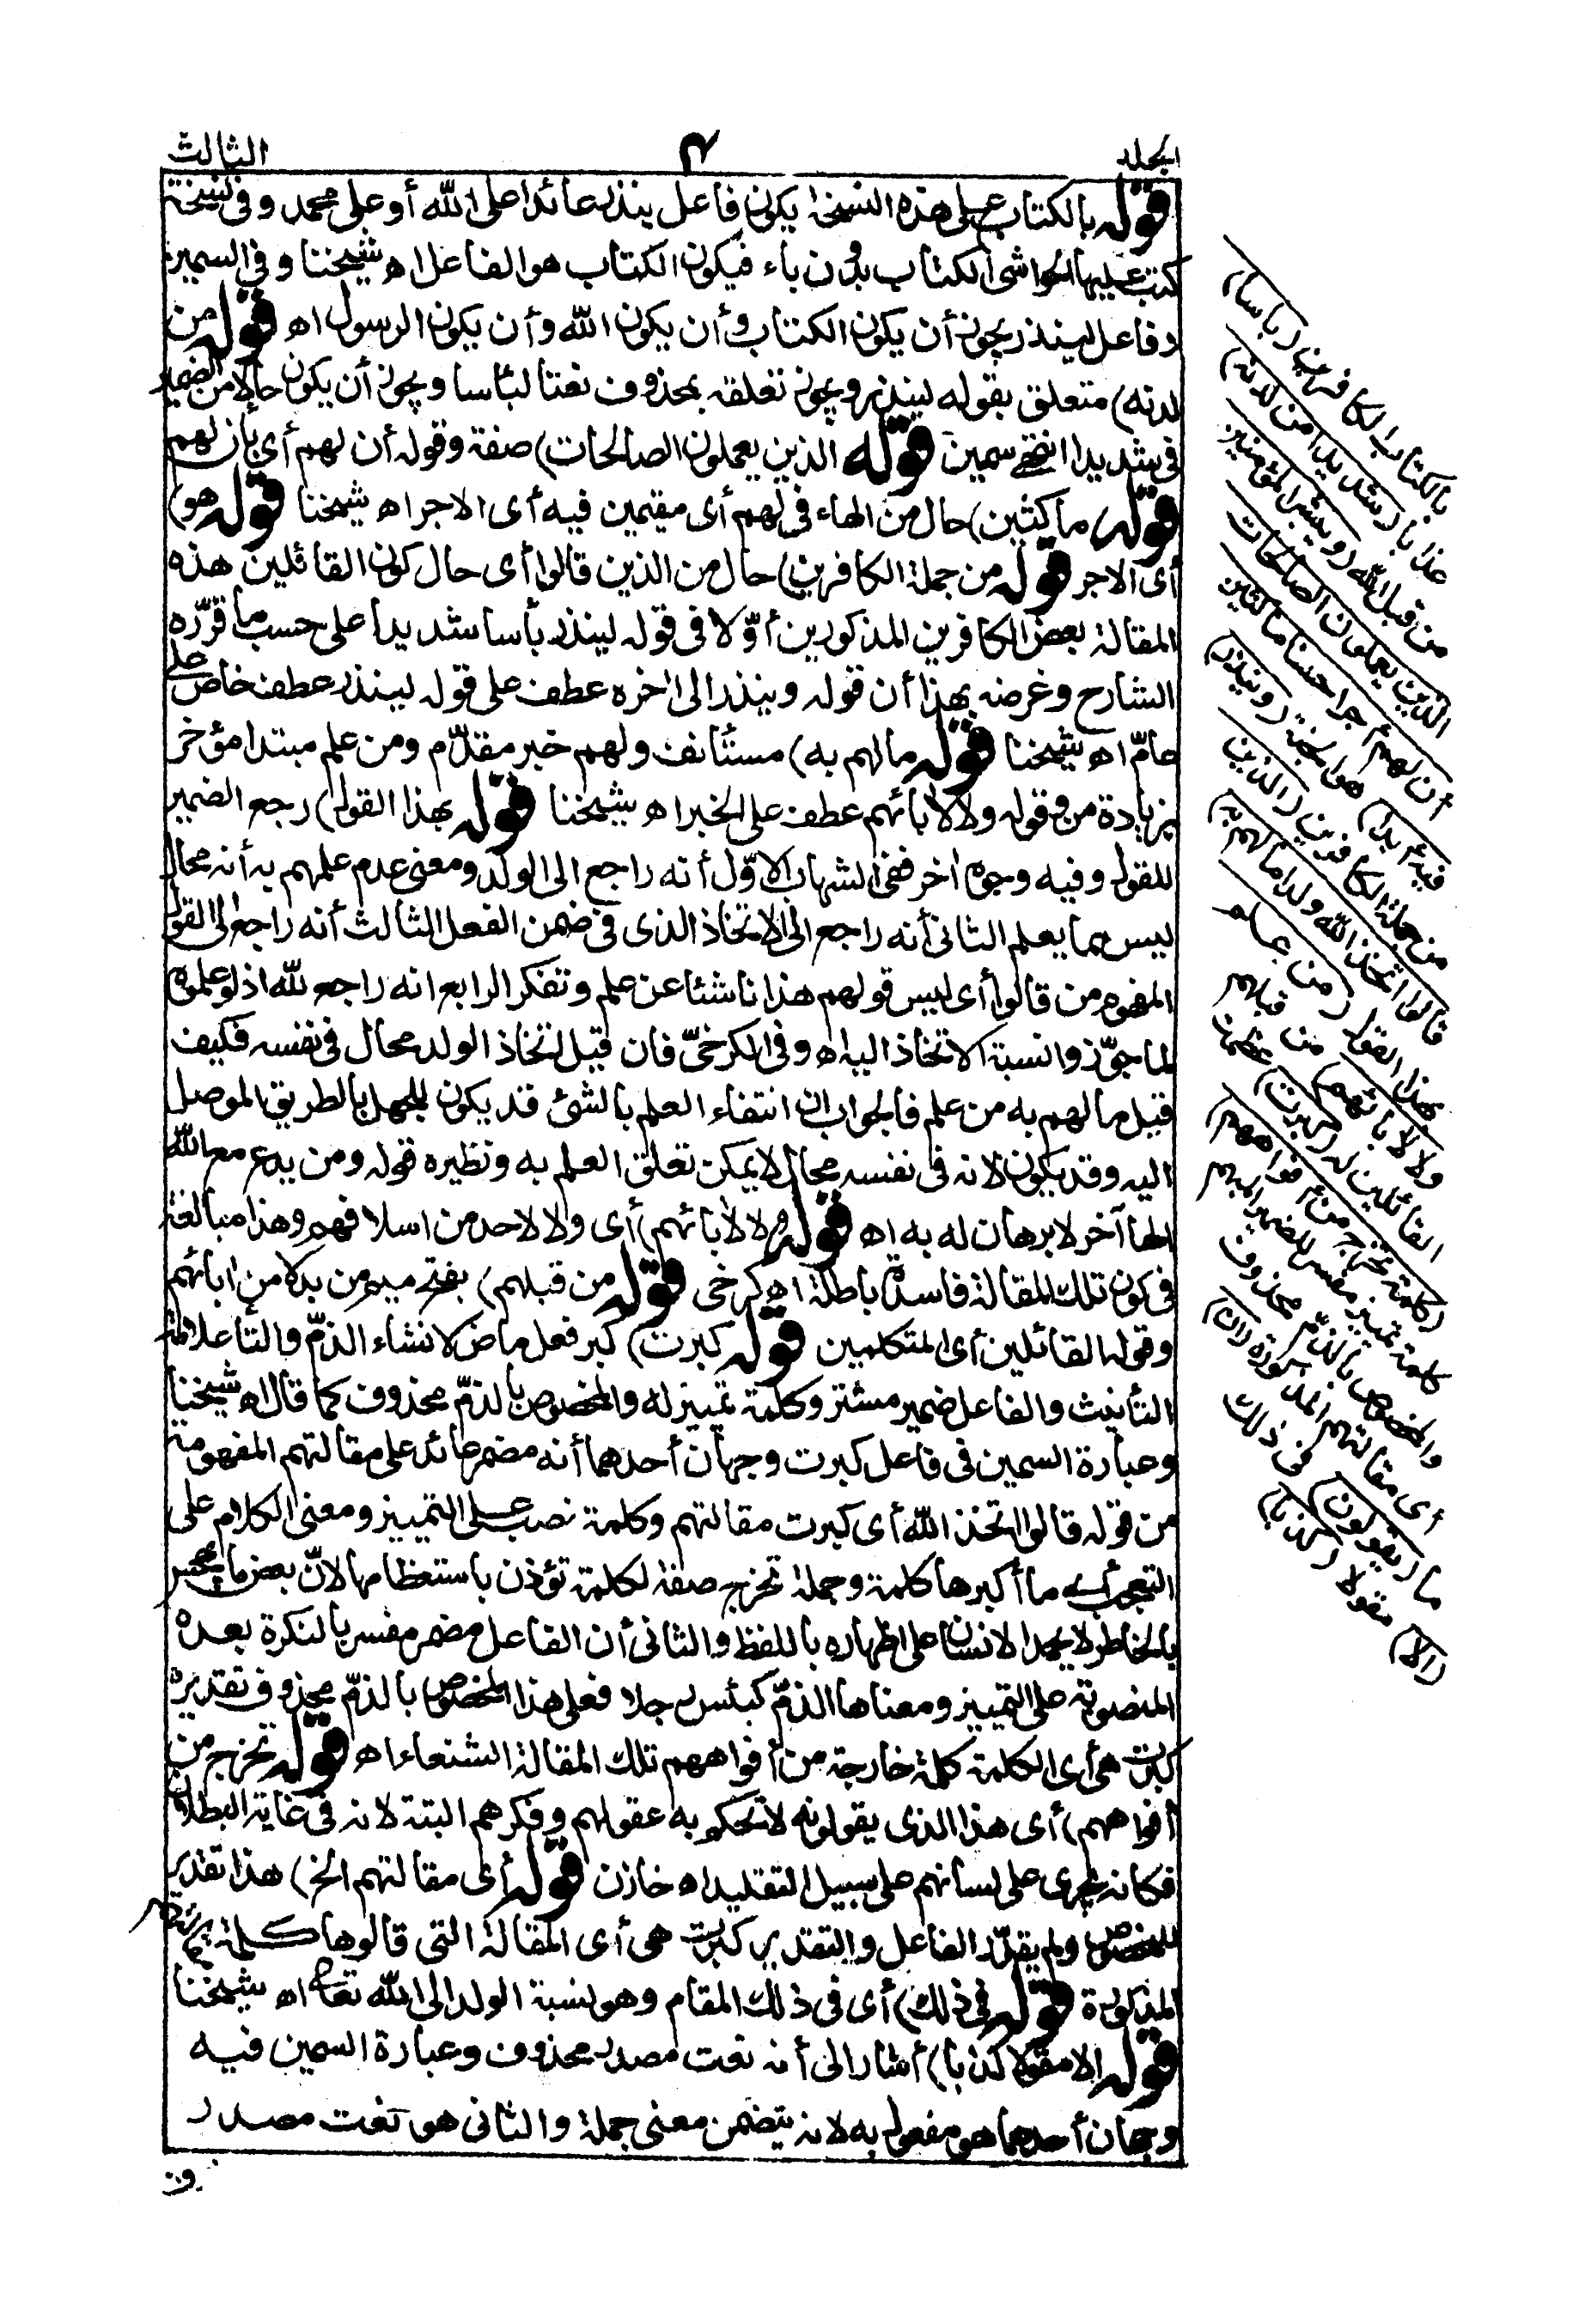 الجلد
٣
الثالث
قوله بالكتاب) على هذه النسخة يكون فاعل ينذر عائدا على الله أو على محمد وفى نسخة
كتب عليها الحواشى الكتاب بدون باء فيكون الكتاب هو الفاعل اه شيخنا وفى السمين
وفاعل لينذر يجوز أن يكون الكتاب وأن يكون الله وأن يكون الرسول اه قوله من
لدنه) متعلق بقوله لينذر ويجوز تعلقه بمحذوف نعتا لبأسا ويجوز أن يكون حالا من الضمير
فى شديدا انتهى سمين قوله الذين يعملون الصالحات) صفة وقوله أن لهم أى بأن لهم
قوله ماكثين) حال من الهاء فى لهم أى مقيمين فيه أى الاجر اه شيخنا قوله هو)
أى الاجر قوله من جملة الكافرين) حال من الذين قالوا أى حال كون القائلين هذه
المقالة بعض الكافرين المذكورين أوّلا فى قوله لينذر بأسا شديدا على حسب ما قرّره
الشارح وغرضه بهذا أن قوله وينذر الى اٰخره عطف على قوله لينذر عطف خاص على
عامّ اه شيخنا قوله مالهم به) مستأنف ولهم خبر مقدّم ومن علم مبتدا مؤخر
بزيادة من وقوله ولا لاٰبائهم عطف على الخبر اه شيخنا قوله بهذا القول) رجع الضمير
للقول وفيه وجوه اٰخر ففى الشهاب الاوّل أنه راجع الى الولد ومعنى عدم علمهم به أنه محال
ليس مما يعلم الثانى أنه راجع الى الاتخاذ الذى فى ضمن الفعل الثالث أنه راجع الى القول
المفهوم من قالوا أى ليس قولهم هذا ناشئا عن علم وتفكر الرابع انه راجع لله اذ لو علموه
لما جوّزوا نسبة الاتخاذ اليه اه وفى الكرخىّ فان قيل اتخاذ الولد محال فى نفسه فكيف
قيل مالهم به من علم فالجواب ان انتفاء العلم بالشئ قد يكون للجهل بالطريق الموصل
اليه وقد يكون لانه فى نفسه محال لا يمكن تعلق العلم به ونظيره قوله ومن يدع مع الله
الها آخر لا برهان له به اه قوله ولا لاٰبائهم) أى ولا لاحد من اسلافهم وهذا مبالغة
فى كون تلك المقالة فاسدة باطلة اه كرخى قوله من قبلهم) بفتح ميم من بدلا من اٰبائهم
وقوله القائلين أى المتكلمين قوله كبرت) كبر فعل ماض لانشاء الذمّ والتاء علامة
التأنيث والفاعل ضمير مستتر وكلمة تمييز له والمخصوص بالذمّ محذوف كما قال اه شيخنا
وعبارة السمين فى فاعل كبرت وجهان أحدهما أنه مضمر عائد على مقالتهم المفهومة
من قوله قالوا اتخذ الله أى كبرت مقالتهم وكلمة نصب على التمييز ومعنى الكلام على
التعجب أى ما أكبرها كلمة وجملة تخرج صفة لكلمة تؤذن باستعظامها لانّ بعض ما يهجس
بالخاطر لا يجسر الانسان على اظهاره باللفظ والثانى أن الفاعل مضمر مفسر بالنكرة بعده
المنصوبة على التمييز ومعناها الذمّ كبئس رجلا فعلى هذا المخصوص بالذمّ محذوف تقديره
كبرت هى أى الكلمة كلمة خارجة من أفواههم تلك المقالة الشنعاء اه قوله تخرج من
أفواههم) أى هذا الذى يقولونه لا تحكم به عقولهم وفكرهم البتة لانه فى غاية البطلان
فكانه يجرى على لسانهم على سبيل التقليد اه خازن قوله أى مقالتهم الخ) هذا تقدير
للمخصوص ولم يقدّر الفاعل والتقدير كبرت هى أى المقالة التى قالوها كلمة
المذكورة قوله فى ذلك) أى فى ذلك المقام وهو نسبة الولد الى الله تعالى اه شيخنا
قوله الا مقولا كذبا) أشار الى أنه نعت مصدر محذوف وعبارة السمين فيه
وجهان أحدهما هو مفعول به لانه يتضمن معنى جملة والثانى هو نعت مصدر
بالكتاب الكافرين (بأسا)
عذابا (شديدا من لدنه)
من قبل الله (ويبشر المؤمنين
الذين يعملون الصالحات
أن لهم أجرا حسنا ماكثين
فيه أبدا) هو الجنة (وينذر)
من جملة الكافرين (الذين
قالوا اتخذ الله ولدا مالهم به)
بهذا القول (من علم
ولا لاٰبائهم) من قبلهم
القائلين له (كبرت) عظمت
(كلمة تخرج من أفواههم)
كلمة تمييز مفسر للضمير المبهم
والمخصوص بالذمّ محذوف
أى مقالتهم المذكورة (ان)
ما (يقولون) فى ذلك
(الا) مقولا (كذبا)